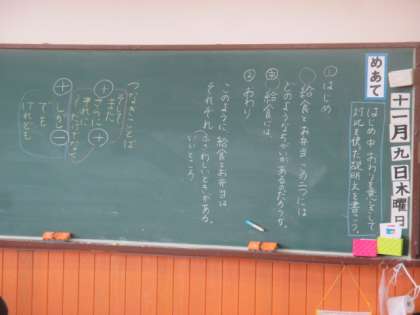 十一月九日木曜日
めあて
はじめ中おわりを意しきして
対比を使った説明文を書こう。
① はじめ
給食とお弁当、この二つには
どのようなちがいがあるのだろうか。
㊥ 給食では、
② おわり
このように、給食とお弁当は
それぞれふさわしいときがある。
いいところ
つなぎことば
そして
また
さらに
それに
だけでなく
しかし
でも
けれども